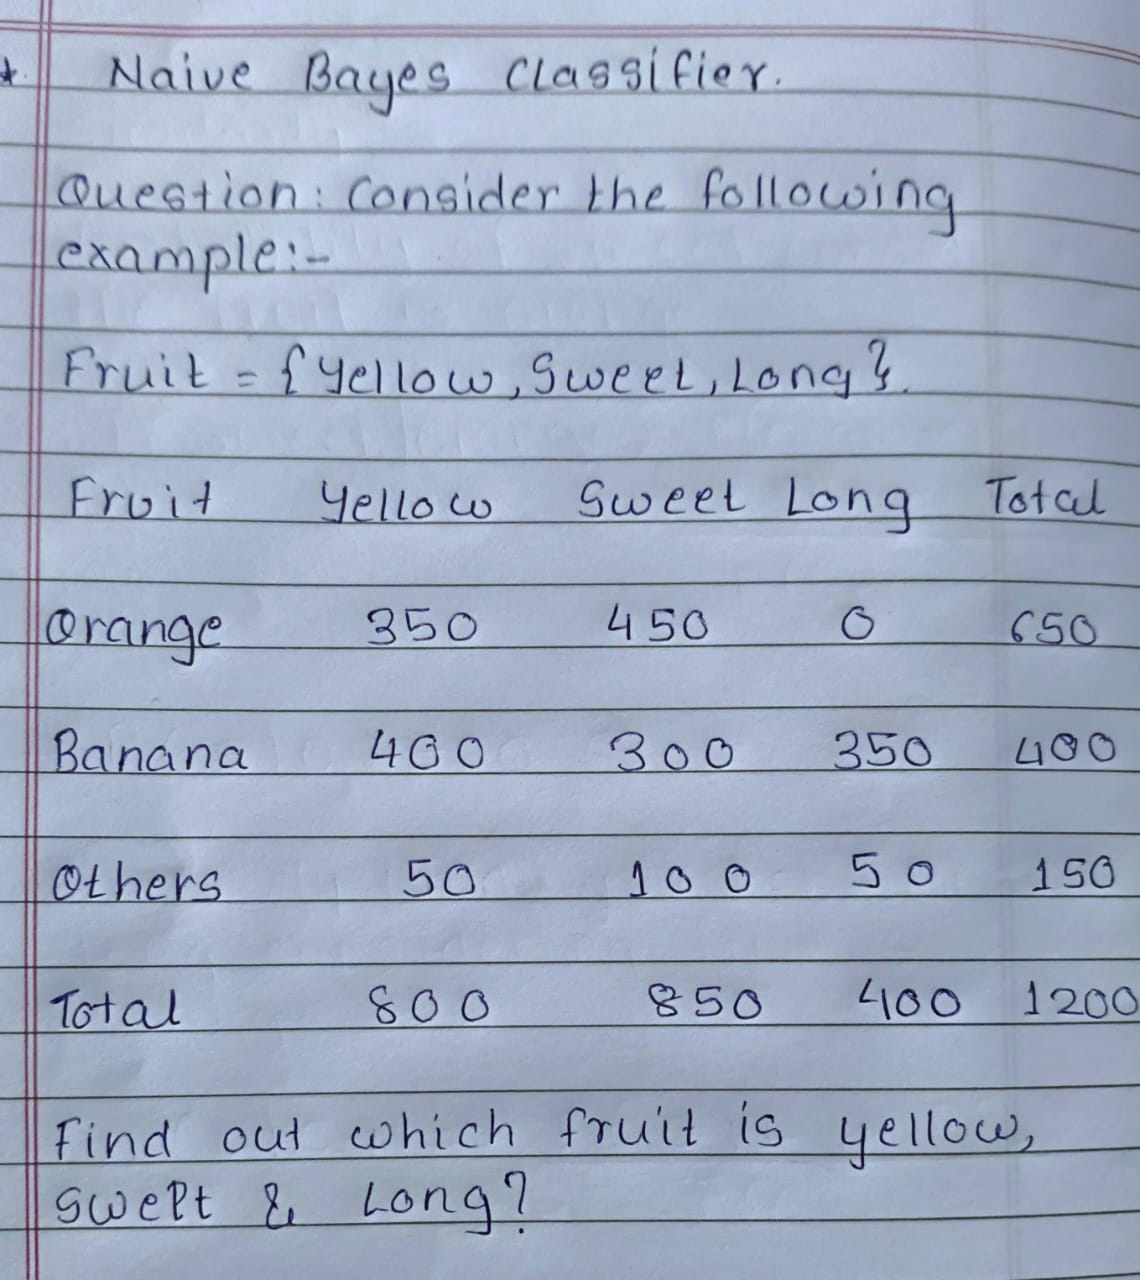 *. Naive Bayes Classifier.
Question: Consider the following
example:-
Fruit = {Yellow, Sweet, Long}.
Fruit Yellow Sweet Long Total
Orange 350 450 0 650
Banana 400 300 350 400
Others 50 100 50 150
Total 800 850 400 1200
Find out which fruit is yellow,
sweet & Long?